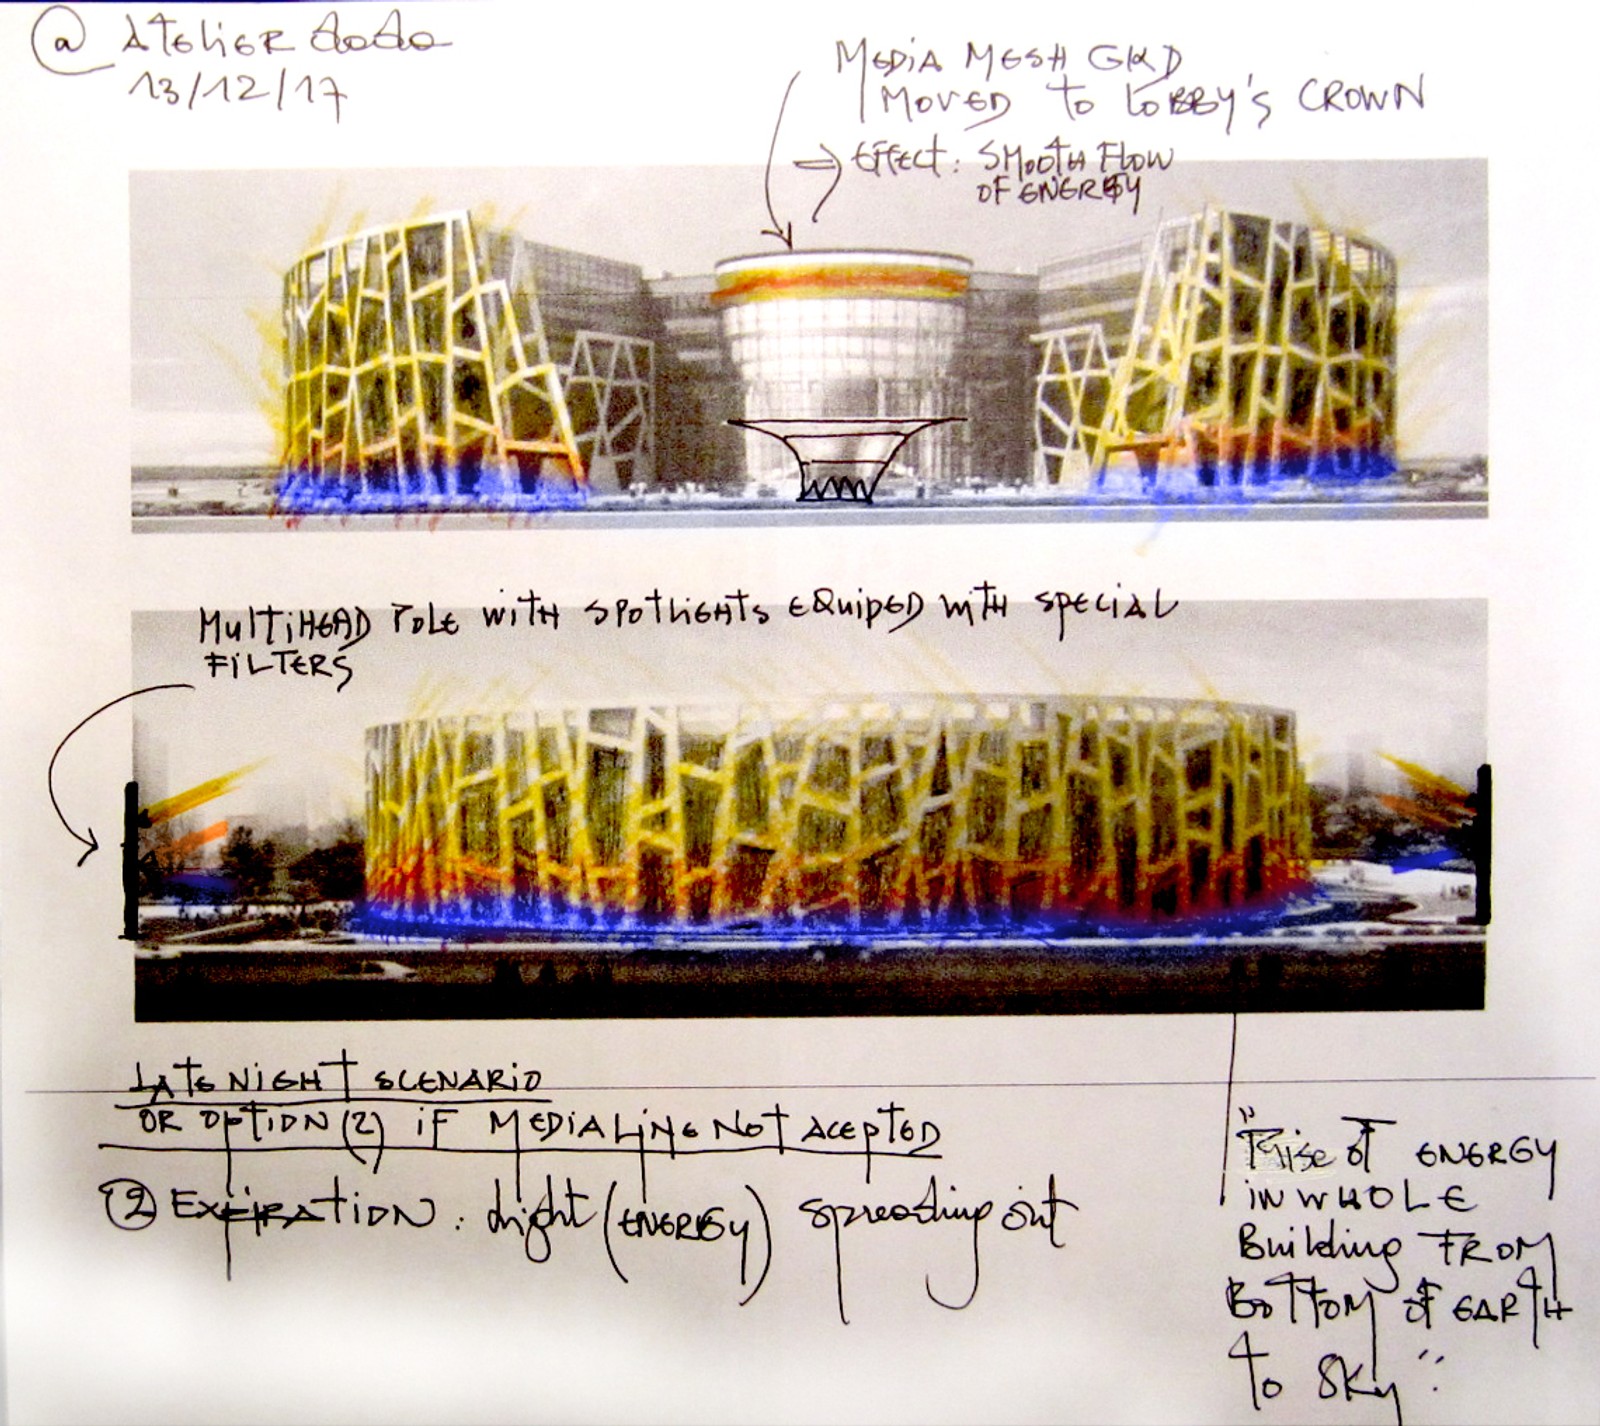 @ ATELIER dodo
13/12/17
MEDIA MESH GKD
MOVED to LOBBY'S CROWN
⇒ EFFECT: SMOOTH FLOW
OF ENERGY
MULTIHEAD POLE WITH SPOTLIGHTS EQUIPED WITH SPECIAL
FILTERS
LATE NIGHT SCENARIO
OR OPTION (2) IF MEDIALINE NOT ACEPTED
② EXPIRATION: light (ENERGY) spreading out
"Rise of ENERGY
IN WHOLE
Building FROM
BOTTOM of EARTH
to SKY"